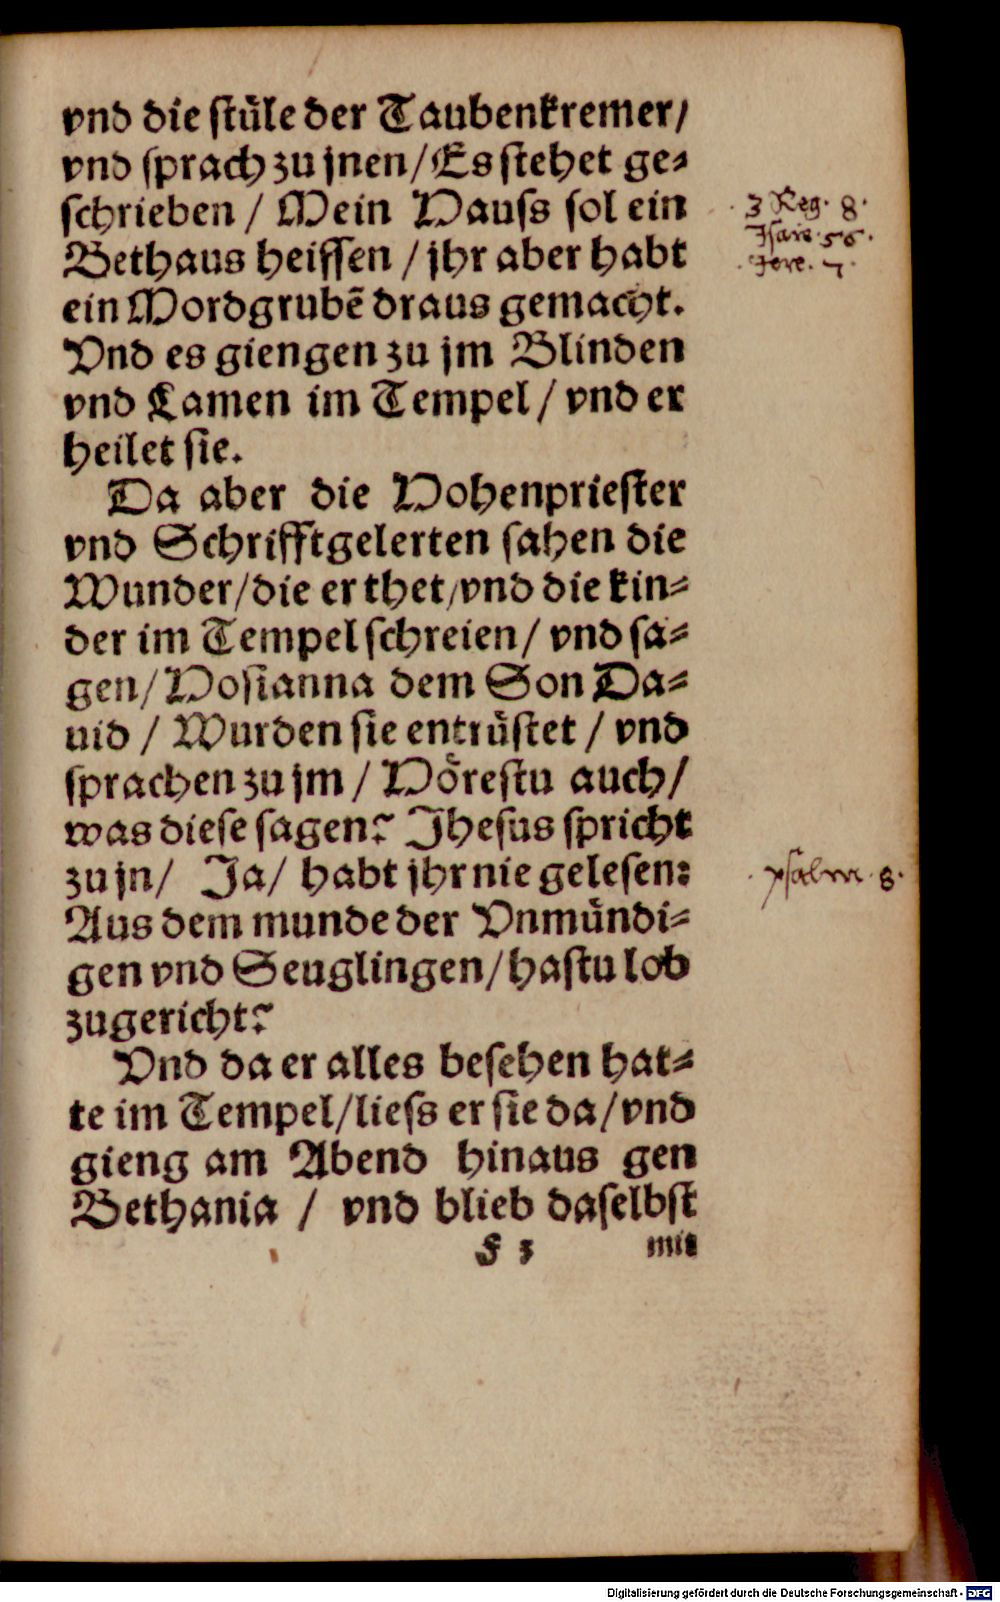 vnd die ſtuͤle der Taubenkremer/
vnd ſprach zu jnen/Es ſtehet ge⸗
ſchrieben / Mein Hauſs ſol ein
Bethaus heiſſen / jhr aber habt
ein Mordgrubẽ draus gemacht.
Vnd es giengen zu jm Blinden
vnd Lamen im Tempel / vnd er
heilet ſie.
Da aber die Hohenprieſter
vnd Schrifftgelerten ſahen die
Wunder/die er thet/vnd die kin⸗
der im Tempel ſchreien/ vnd ſa⸗
gen/Hoſianna dem Son Da⸗
uid / Wurden ſie entruͤſtet / vnd
ſprachen zu jm / Hoͤreſtu auch/
was dieſe ſagen? Jheſus ſpricht
zu jn/ Ja/ habt jhr nie geleſen:
Aus dem munde der Vnmuͤndi⸗
gen vnd Seuglingen/haſtu lob
zugericht?
Vnd da er alles beſehen hat⸗
te im Tempel/lieſs er ſie da/vnd
gieng am Abend hinaus gen
Bethania / vnd blieb daſelbſt
F 3 mit
3 Reg. 8.
Isaie. 56.
Jere. 7.
psalm. 8.
Digitalisierung gefördert durch die Deutsche Forschungsgemeinschaft - DFG